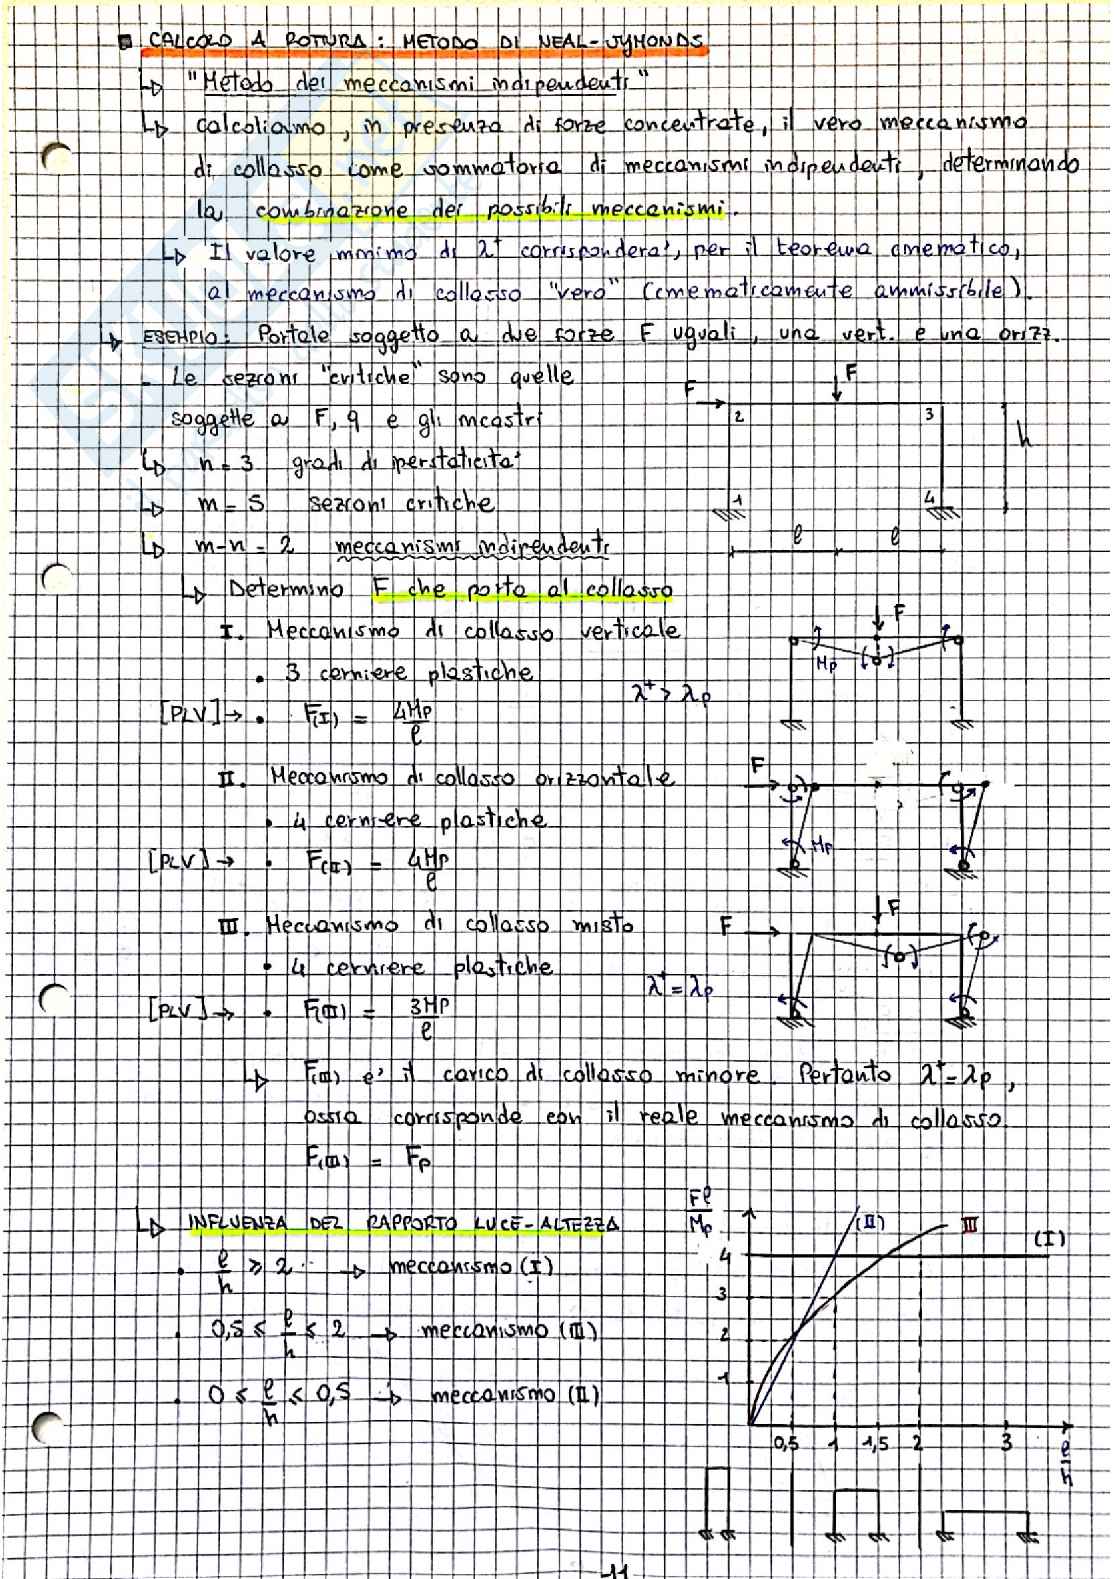 CALCOLO A ROTTURA: METODO DI NEAL-SYMONDS
"Metodo dei meccanismi indipendenti"
Calcoliamo, in presenza di forze concentrate, il vero meccanismo
di collasso come sommatoria di meccanismi indipendenti, determinando
la combinazione dei possibili meccanismi.
Il valore minimo di λ⁺ corrisponderà, per il teorema cinematico,
al meccanismo di collasso "vero" (cinematicamente ammissibile).
ESEMPIO: Portale soggetto a due forze F uguali, una vert. e una orizz.
- Le sezioni "critiche" sono quelle
soggette a F, q e gli incastri
n = 3 gradi di iperstaticità
m = 5 sezioni critiche
m-n = 2 meccanismi indipendenti
F
F
2
3
h
1
4
l
l
Determino F che porta al collasso
I. Meccanismo di collasso verticale
• 3 cerniere plastiche
[PLV] → • F(I) = 4Mp/l
λ⁺ > λp
F
Mp
II. Meccanismo di collasso orizzontale
• 4 cerniere plastiche
[PLV] → • F(II) = 4Mp/l
F
Mp
III. Meccanismo di collasso misto
• 4 cerniere plastiche
[PLV] → • F(III) = 3Mp/l
λ⁺ = λp
F
F
F(III) e' il carico di collasso minore. Pertanto λ⁺ = λp,
ossia corrisponde con il reale meccanismo di collasso.
F(III) = Fp
INFLUENZA DEL RAPPORTO LUCE-ALTEZZA
• l/h ≥ 2 → meccanismo (I)
• 0,5 ≤ l/h ≤ 2 → meccanismo (III)
• 0 ≤ l/h ≤ 0,5 → meccanismo (II)
Fl/Mp
(II)
III
(I)
4
3
2
1
0,5 1 1,5 2 3
l/h
11